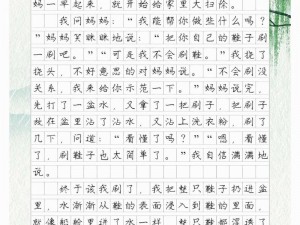 妈一早起来,就开始给家里大扫除。
我问妈妈:“我能帮你做些什么吗?
”妈妈笑眯眯地说:“把你自己的鞋子刷
一刷吧。”“可是我不会刷鞋。”我挠了
挠头,不好意思的对妈妈说。“不会刷没
关系,我来给你示范一下。”妈妈说完,
先打了一盆水,又拿了一把刷子,把刷子
放在盆里蘸了蘸水,又沾上洗衣粉,刷了
几下,问道:“看懂了吗?”“嗯,看懂
了,刷鞋子也太简单了。”我自信满满地
说。
终于该我刷了,我把整只鞋子扔进盆
里,水渐渐从鞋的表面浸入到鞋的里面,
就像船舱里进了水一样,整只鞋都湿透了